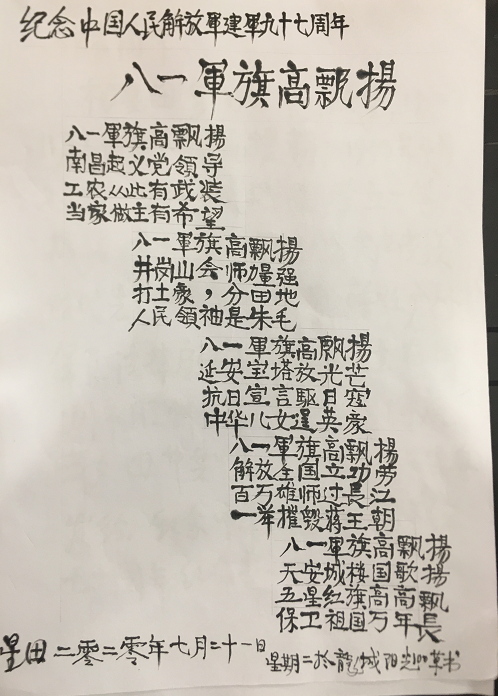 纪念中国人民解放軍建軍九十七周年
八一軍旗高飄揚
八一軍旗高飘揚
南昌起义党領导
工农从此有武装
当家做主有希望
八一軍旗高飄揚
井岗山会师力量强
打土豪，分田地
人民領袖是朱毛
八一軍旗高飄揚
延安宝塔放光芒
抗日宣言駆日寇
中华儿女逞英豪
八一軍旗高飄揚
解放全国立功劳
百万雄师过長江
一举摧毁蒋王朝
八一軍旗高飄揚
天安城楼国歌揚
五星红旗高高飄
保卫祖国万年長
星田二零二零年七月二十一日
星期二於龍城阳光